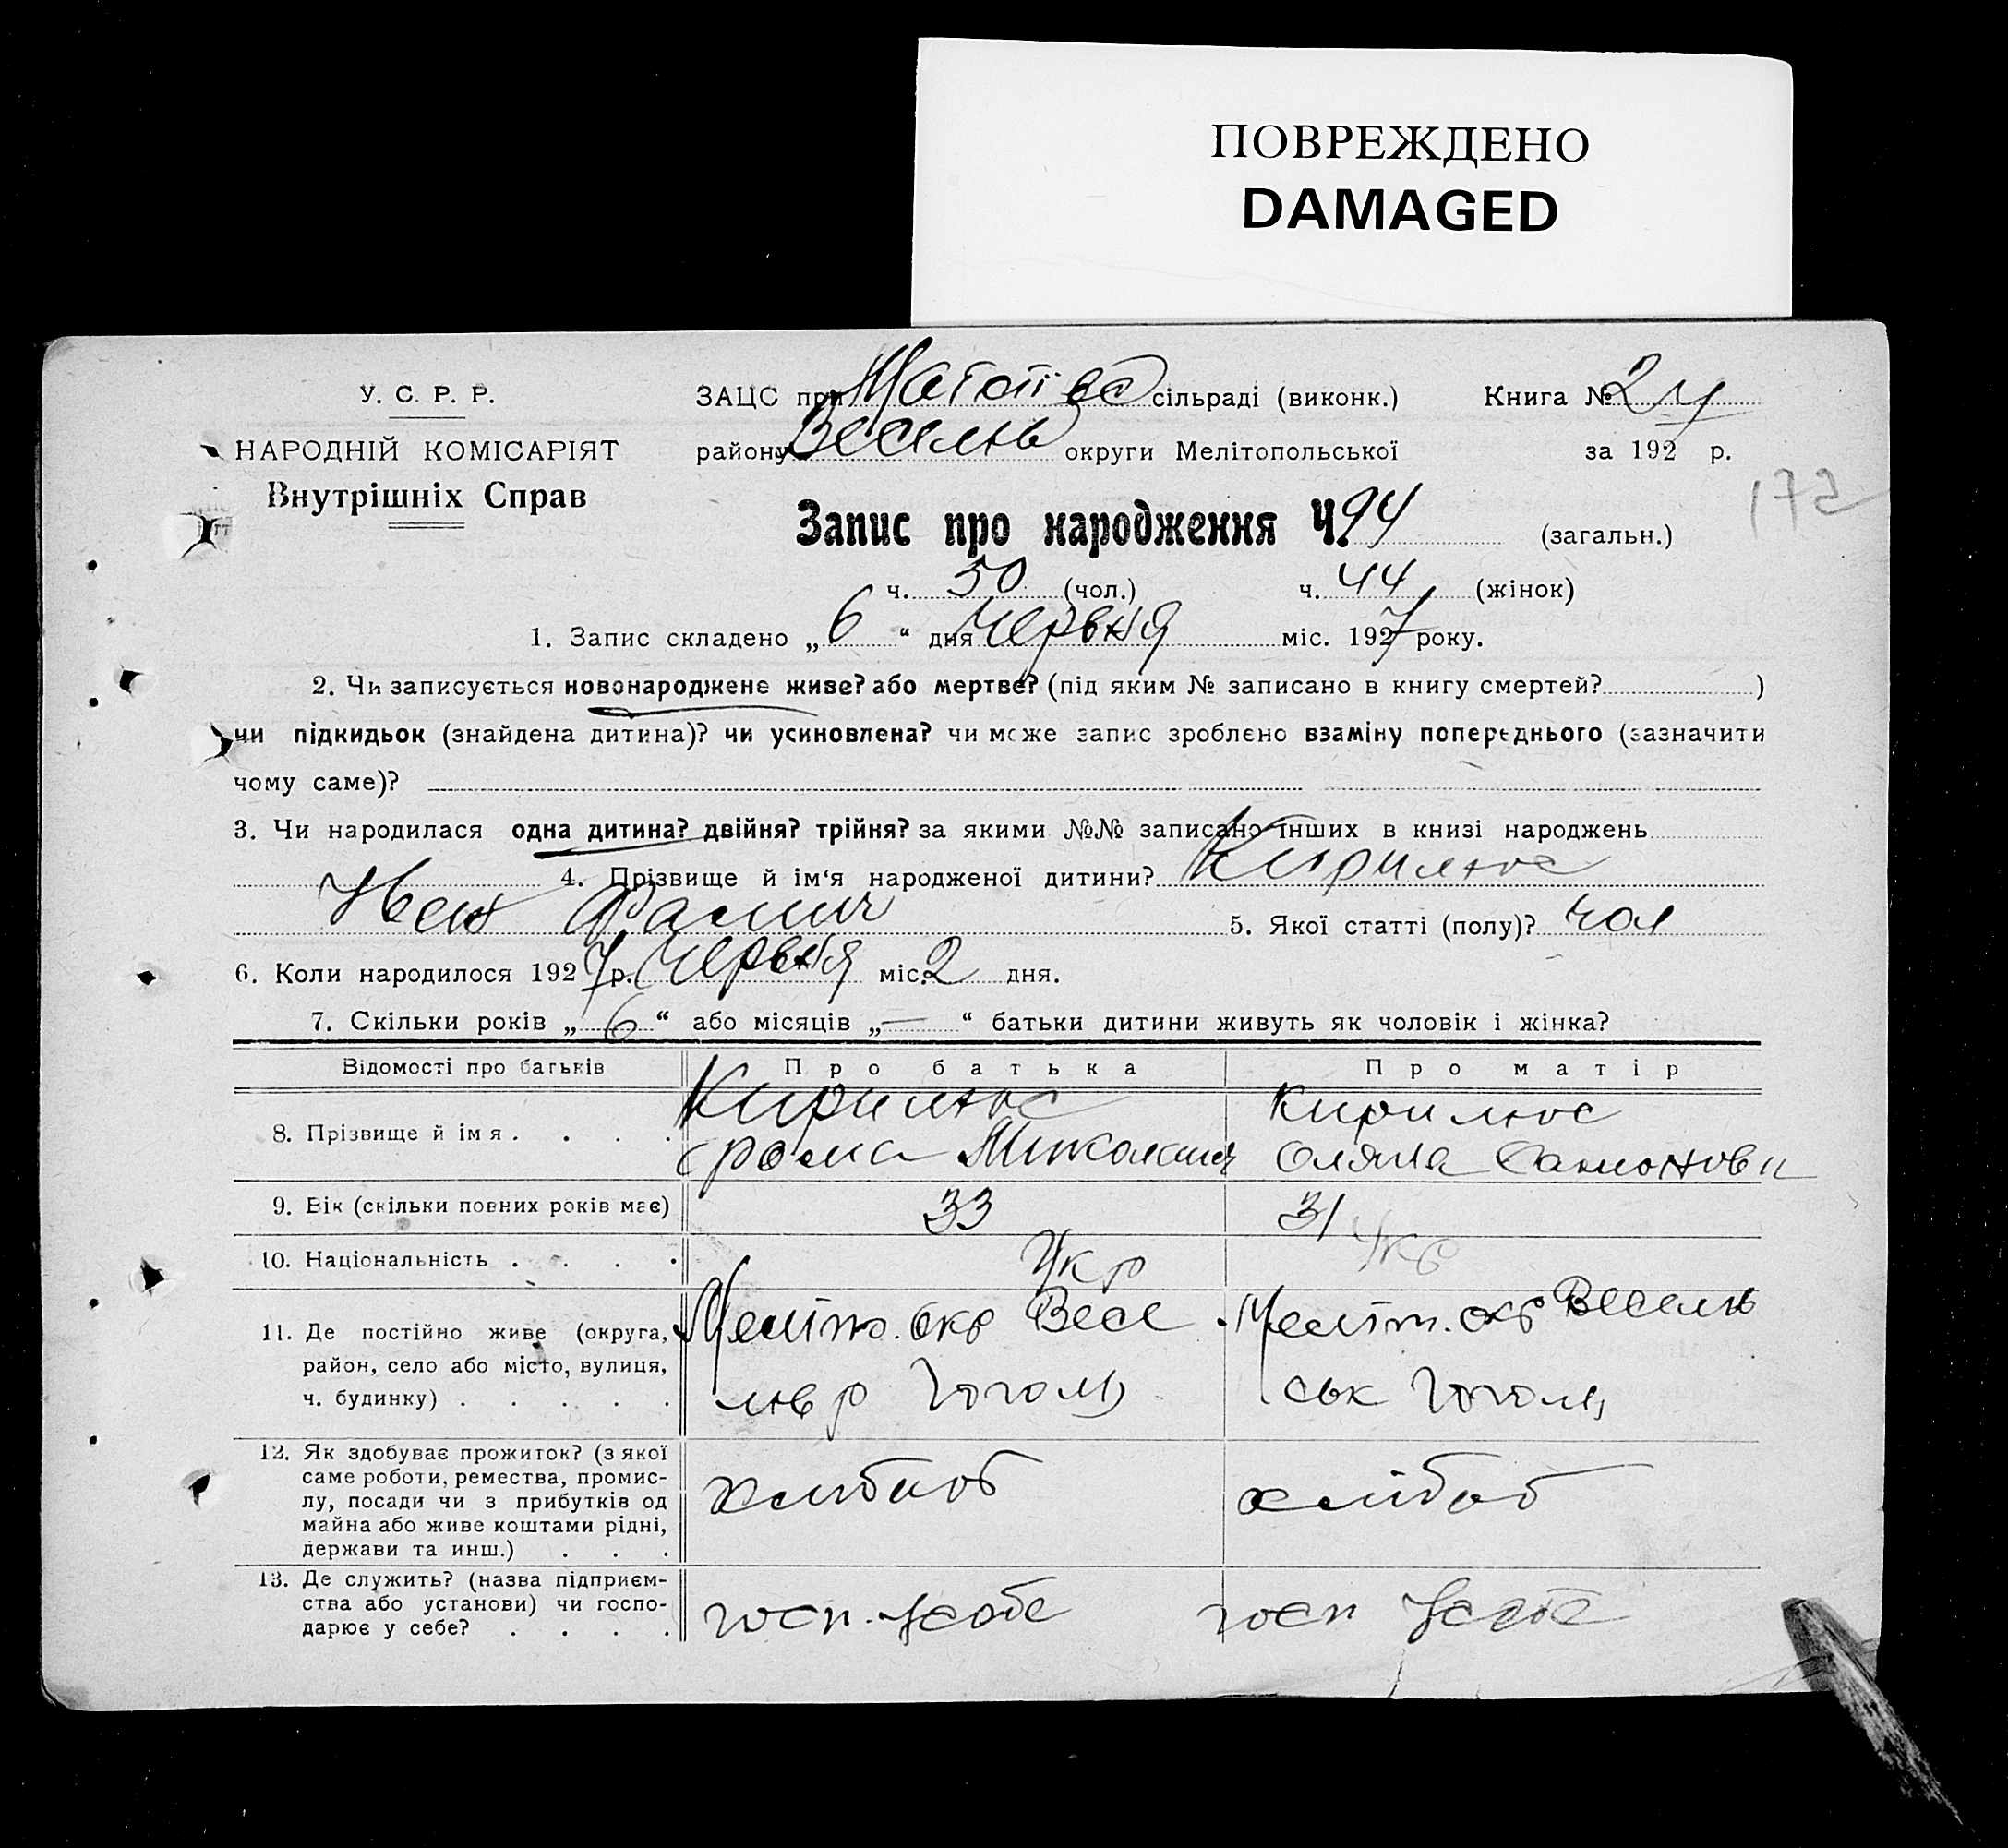 ПОВРЕЖДЕНО
DAMAGED
У. С. Р. Р.
ЗАЦС при сільраді (виконк.)
Книга № 24
НАРОДНІЙ КОМІСАРІЯТ
району Веселів округи Мелітопольської
за 192 р.
Внутрішніх Справ
172
Запис про народження Ч. 94 (загальн.)
ч. 50 (чол.) ч. 44 (жінок)
1. Запис складено „ 6 “ дня Червня міс. 1927 року.
2. Чи записується новонароджене живе? або мертве? (під яким № записано в книгу смертей? )
чи підкидьок (знайдена дитина)? чи усиновлена? чи може запис зроблено взаміну попереднього (зазначити
чому саме)?
3. Чи народилася одна дитина? двійня? трійня? за якими №№ записано інших в книзі народжень
4. Прізвище й ім‘я народженої дитини? Кирилюс
5. Якої статті (полу)? чол
6. Коли народилося 1927 р. Червня міс. 2 дня.
7. Скільки років „ 6 “ або місяців „ — “ батьки дитини живуть як чоловік і жінка?
Відомості про батьків Про батька Про матір
8. Прізвище й імя . . . .
Кирилюс
Миколаич
Кирилюс
Оляна Самонови
9. Вік (скільки повних років має) 33 31
10. Національність . . . . Укр Укр
11. Де постійно живе (округа,
район, село або місто, вулиця,
ч. будинку) . . . . .
Меліт. окр Весе
лів р Гоголя
Меліт. окр Веселів
ськ Гоголя
12. Як здобуває прожиток? (з якої
саме роботи, ремества, промис-
лу, посади чи з прибутків од
майна або живе коштами рідні,
держави та инш.) . . .
хлібороб
хлібороб
13. Де служить? (назва підприєм-
ства або установи) чи госпо-
дарює у себе? . . . .
госп. у себе
госп у себе